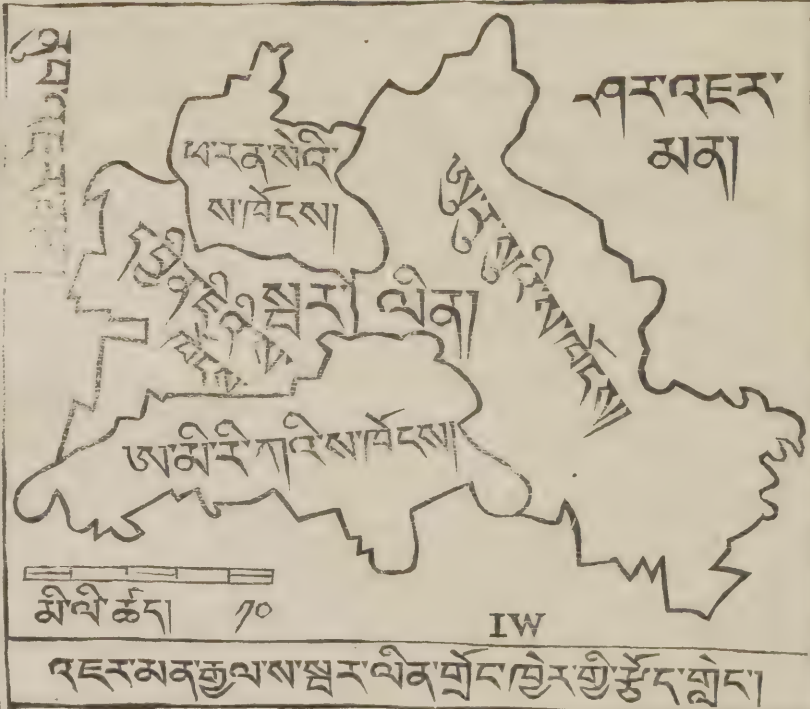 ནུབ་འཇར་མན།
ཤར་འཇར་
མན།
ཕ་རན་སེའི་
ས་ཁོངས།
ཨུ་རུ་སུའི་ས་ཁོངས།
དབྱིན་ཇིའི་ས་
ཁོངས།
སྦར། ལིན།
ཨ་མི་རི་ཀའི་ས་ཁོངས།
མི་ལི་ཚད། ༡༠
IW
འཇར་མན་རྒྱལ་ས་སྦར་ལིན་གྲོང་ཁྱེར་གྱི་རྩོད་གླེང་།